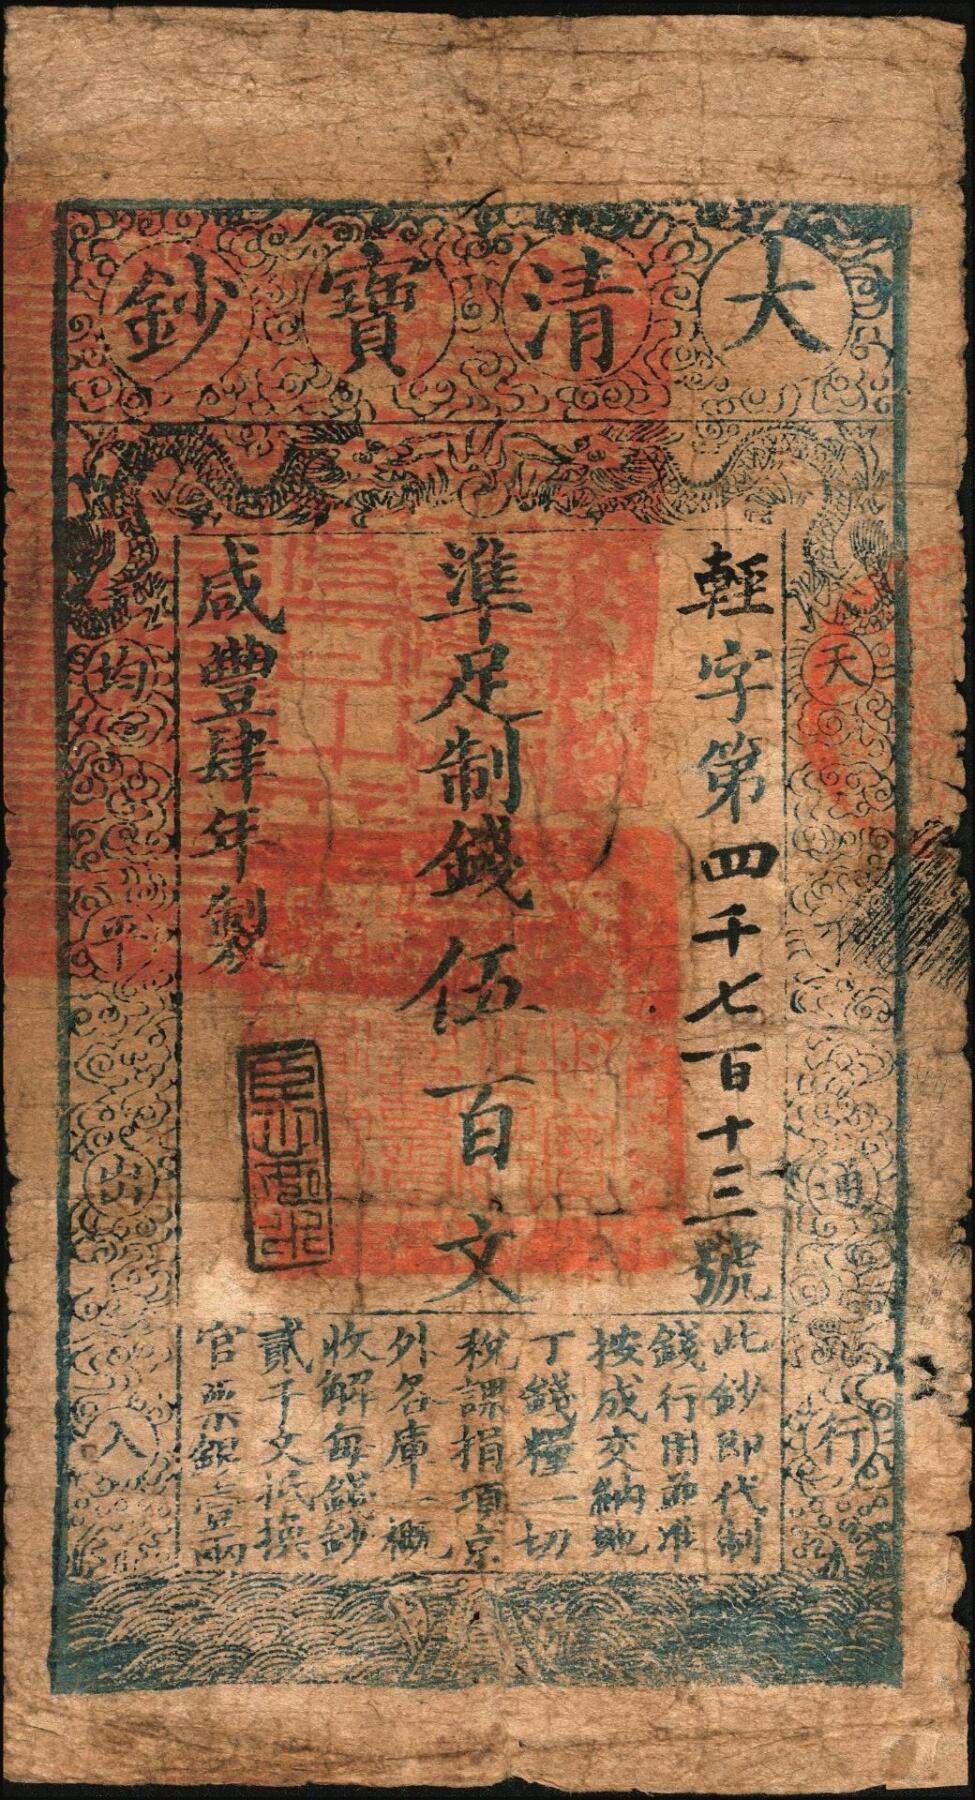 大清寶鈔
輕字第四千七百十三號
準足制錢伍百文
咸豐肆年製
天下通行
均平出入
此鈔即代制
錢行用並准
按成交納地
丁錢糧一切
稅課捐項京
外各庫一概
收解每錢鈔
貳千文抵換
官票銀壹兩